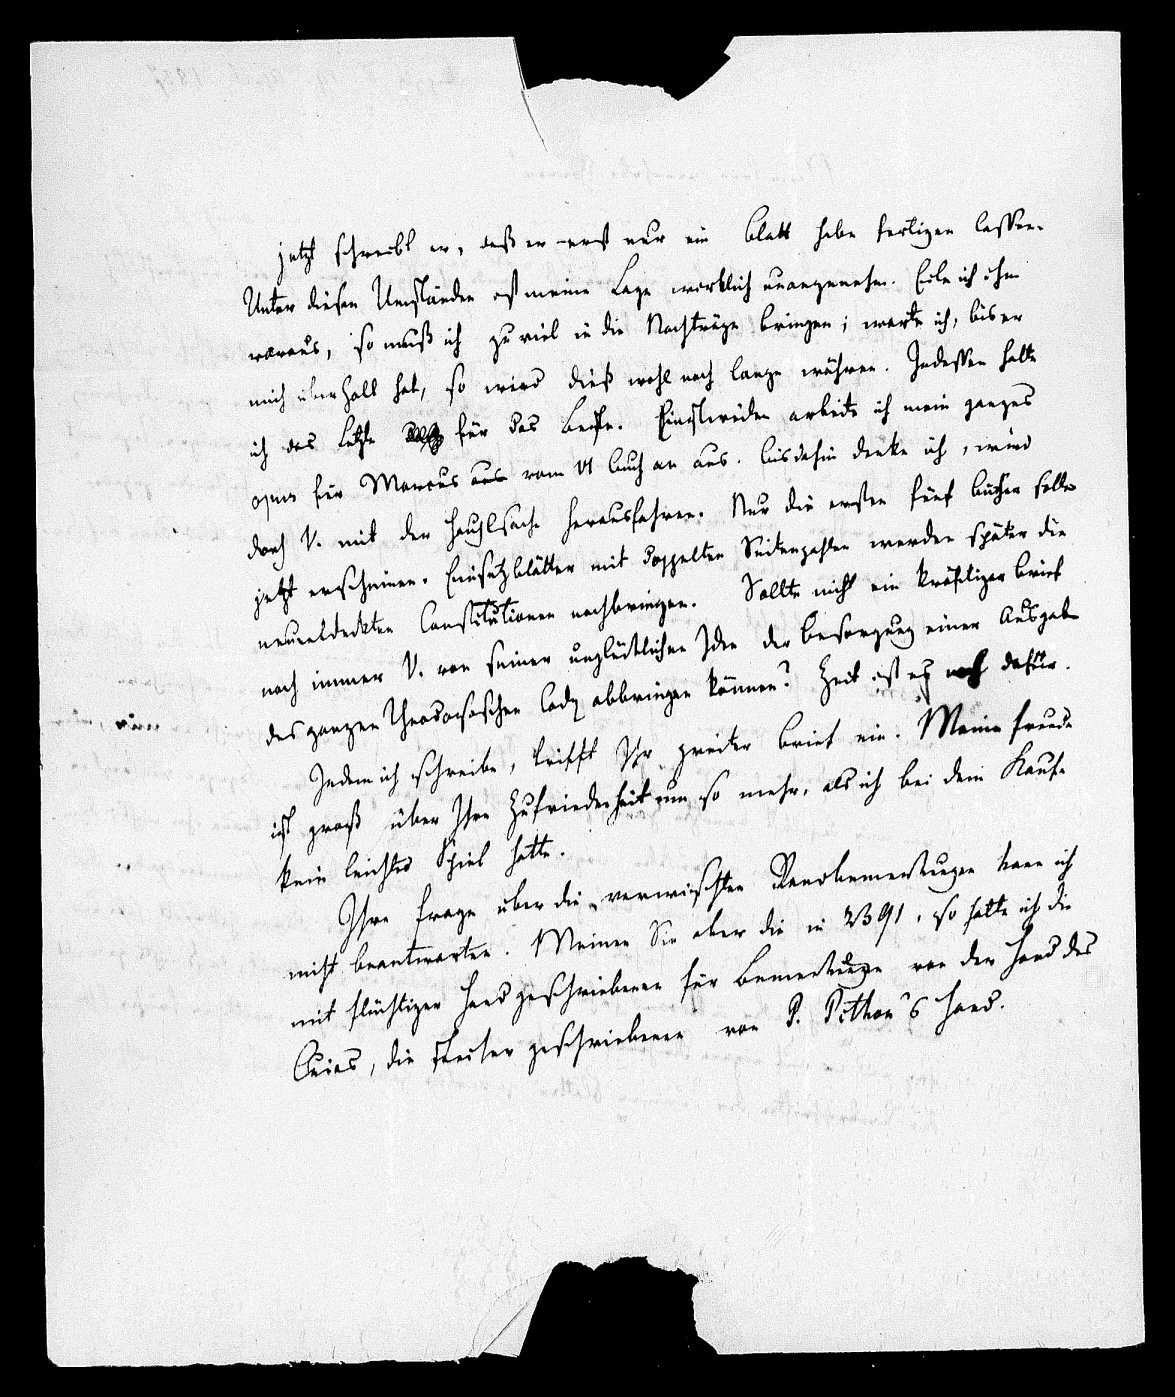 jetzt schreibt er, daß er erst nur ein Blatt habe fertigen lassen.
Unter diesen Umständen ist meine Lage wirklich unangenehm. Eile ich ihm
voraus, so muß ich zu viel in die Nachträge bringen; warte ich, bis er
mich überholt hat, so wird dieß wohl noch lange währen. Indessen halte
ich das Letzte für das Beste. Einstweilen arbeite ich mein ganzes
opus für Marcus aus vom VI Buch an aus. bis dahin denke ich, wird
doch V. mit der Hauptsache herausfahren. Nur die ersten fünf Bücher sollen
jetzt erscheinen. Einsatzblätter mit doppelten Seitenzahlen werden später die
neuentdeckten Constitutionen nachbringen. Sollte nicht ein kräftiger Brief
noch immer V. von seiner unglücklichen Idee der Besorgung einer Ausgabe
des ganzen Theodosischen Codex abbringen können? Zeit ist es noch dafür.
Indem ich schreibe, trifft Ihr zweiter Brief ein. Meine Freude
ist groß über Ihre Zufriedenheit um so mehr, als ich bei dem Kaufe
kein leichtes Spiel hatte.
Ihre Frage über die verwischten Randbemerkungen kann ich
nicht beantworten. Meinen Sie aber die in 2391, so halte ich die
mit flüchtiger Hand geschriebenen für Bemerkungen von der Hand des
Cuias, die steifer geschriebenen von P. Pithou's Hand.